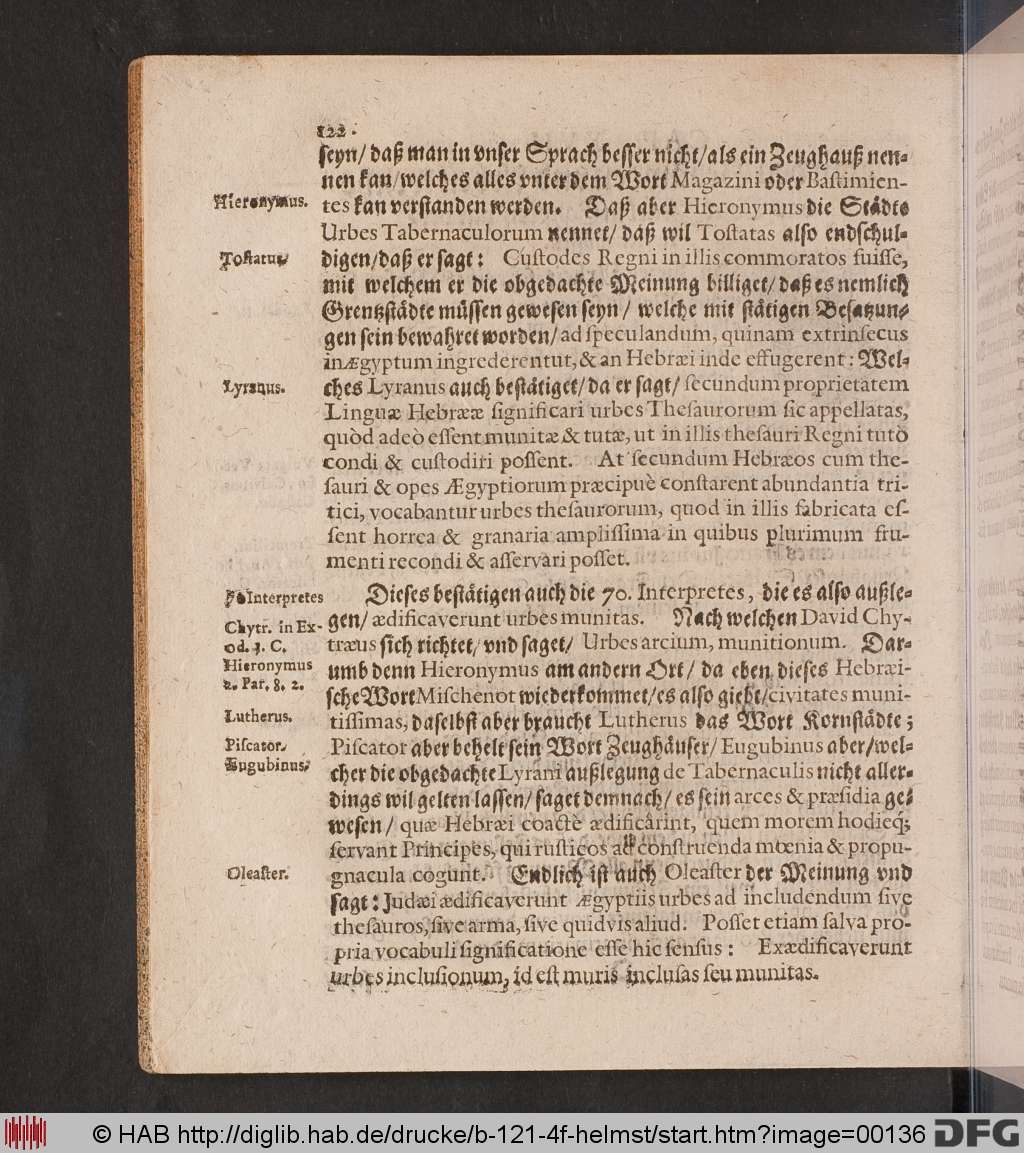 122.
seyn/ daß man in vnser Sprach besser nicht/ als ein Zeughauß nen-
nen kan/ welches alles vnter dem Wort Magazini oder Bastimien-
Hieronymus.
tes kan verstanden werden. Daß aber Hieronymus die Städte
Urbes Tabernaculorum nennet/ daß wil Tostatas also endschul-
Tostatus
digen/ daß er sagt: Custodes Regni in illis commoratos fuisse,
mit welchem er die obgedachte Meinung billiget/ daß es nemlich
Grentzstädte müssen gewesen seyn / welche mit stätigen Besatzun-
gen sein bewahret worden/ ad speculandum, quinam extrinsecus
in Ægyptum ingrederentut, & an Hebræi inde effugerent: Wel-
Lyranus.
ches Lyranus auch bestätiget/ da er sagt/ secundum proprietatem
Linguæ Hebrææ significari urbes Thesaurorum sic appellatas,
quòd adeò essent munitæ & tutæ, ut in illis thesauri Regni tutò
condi & custodiri possent. At secundum Hebræos cum the-
sauri & opes Ægyptiorum præcipuè constarent abundantia tri-
tici, vocabantur urbes thesaurorum, quod in illis fabricata es-
sent horrea & granaria amplissima in quibus plurimum fru-
menti recondi & asservari posset.
70 Interpretes
Dieses bestätigen auch die 70. Interpretes, die es also außle-
Chytr. in Ex-
gen/ ædificaverunt urbes munitas. Nach welchen David Chy-
od. 1. C.
træus sich richtet/ vnd saget/ Urbes arcium, munitionum. Dar-
Hieronymus
umb denn Hieronymus am andern Ort/ da eben dieses Hebræi-
2. Par. 8. 2.
sche Wort Mischenot wiederkommet/ es also giebt/ civitates muni-
Lutherus.
tissimas, daselbst aber braucht Lutherus das Wort Kornstädte;
Piscator.
Piscator aber behelt sein Wort Zeughäuser/ Eugubinus aber/ wel-
Eugubinus.
cher die obgedachte Lyrani außlegung de Tabernaculis nicht aller-
dings wil gelten lassen/ saget demnach/ es sein arces & præsidia ge-
wesen/ quæ Hebræi coactè ædificârint, quem morem hodieq́;
servant Principes, qui rusticos ad construenda mœnia & propu-
Oleaster.
gnacula cogunt. Endlich ist auch Oleaster der Meinung vnd
sagt: Judæi ædificaverunt Ægyptiis urbes ad includendum sive
thesauros, sive arma, sive quidvis aliud. Posset etiam salva pro-
pria vocabuli significatione esse hic sensus: Exædificaverunt
urbes inclusionum, id est muris inclusas seu munitas.
© HAB http://diglib.hab.de/drucke/b-121-4f-helmst/start.htm?image=00136 DFG